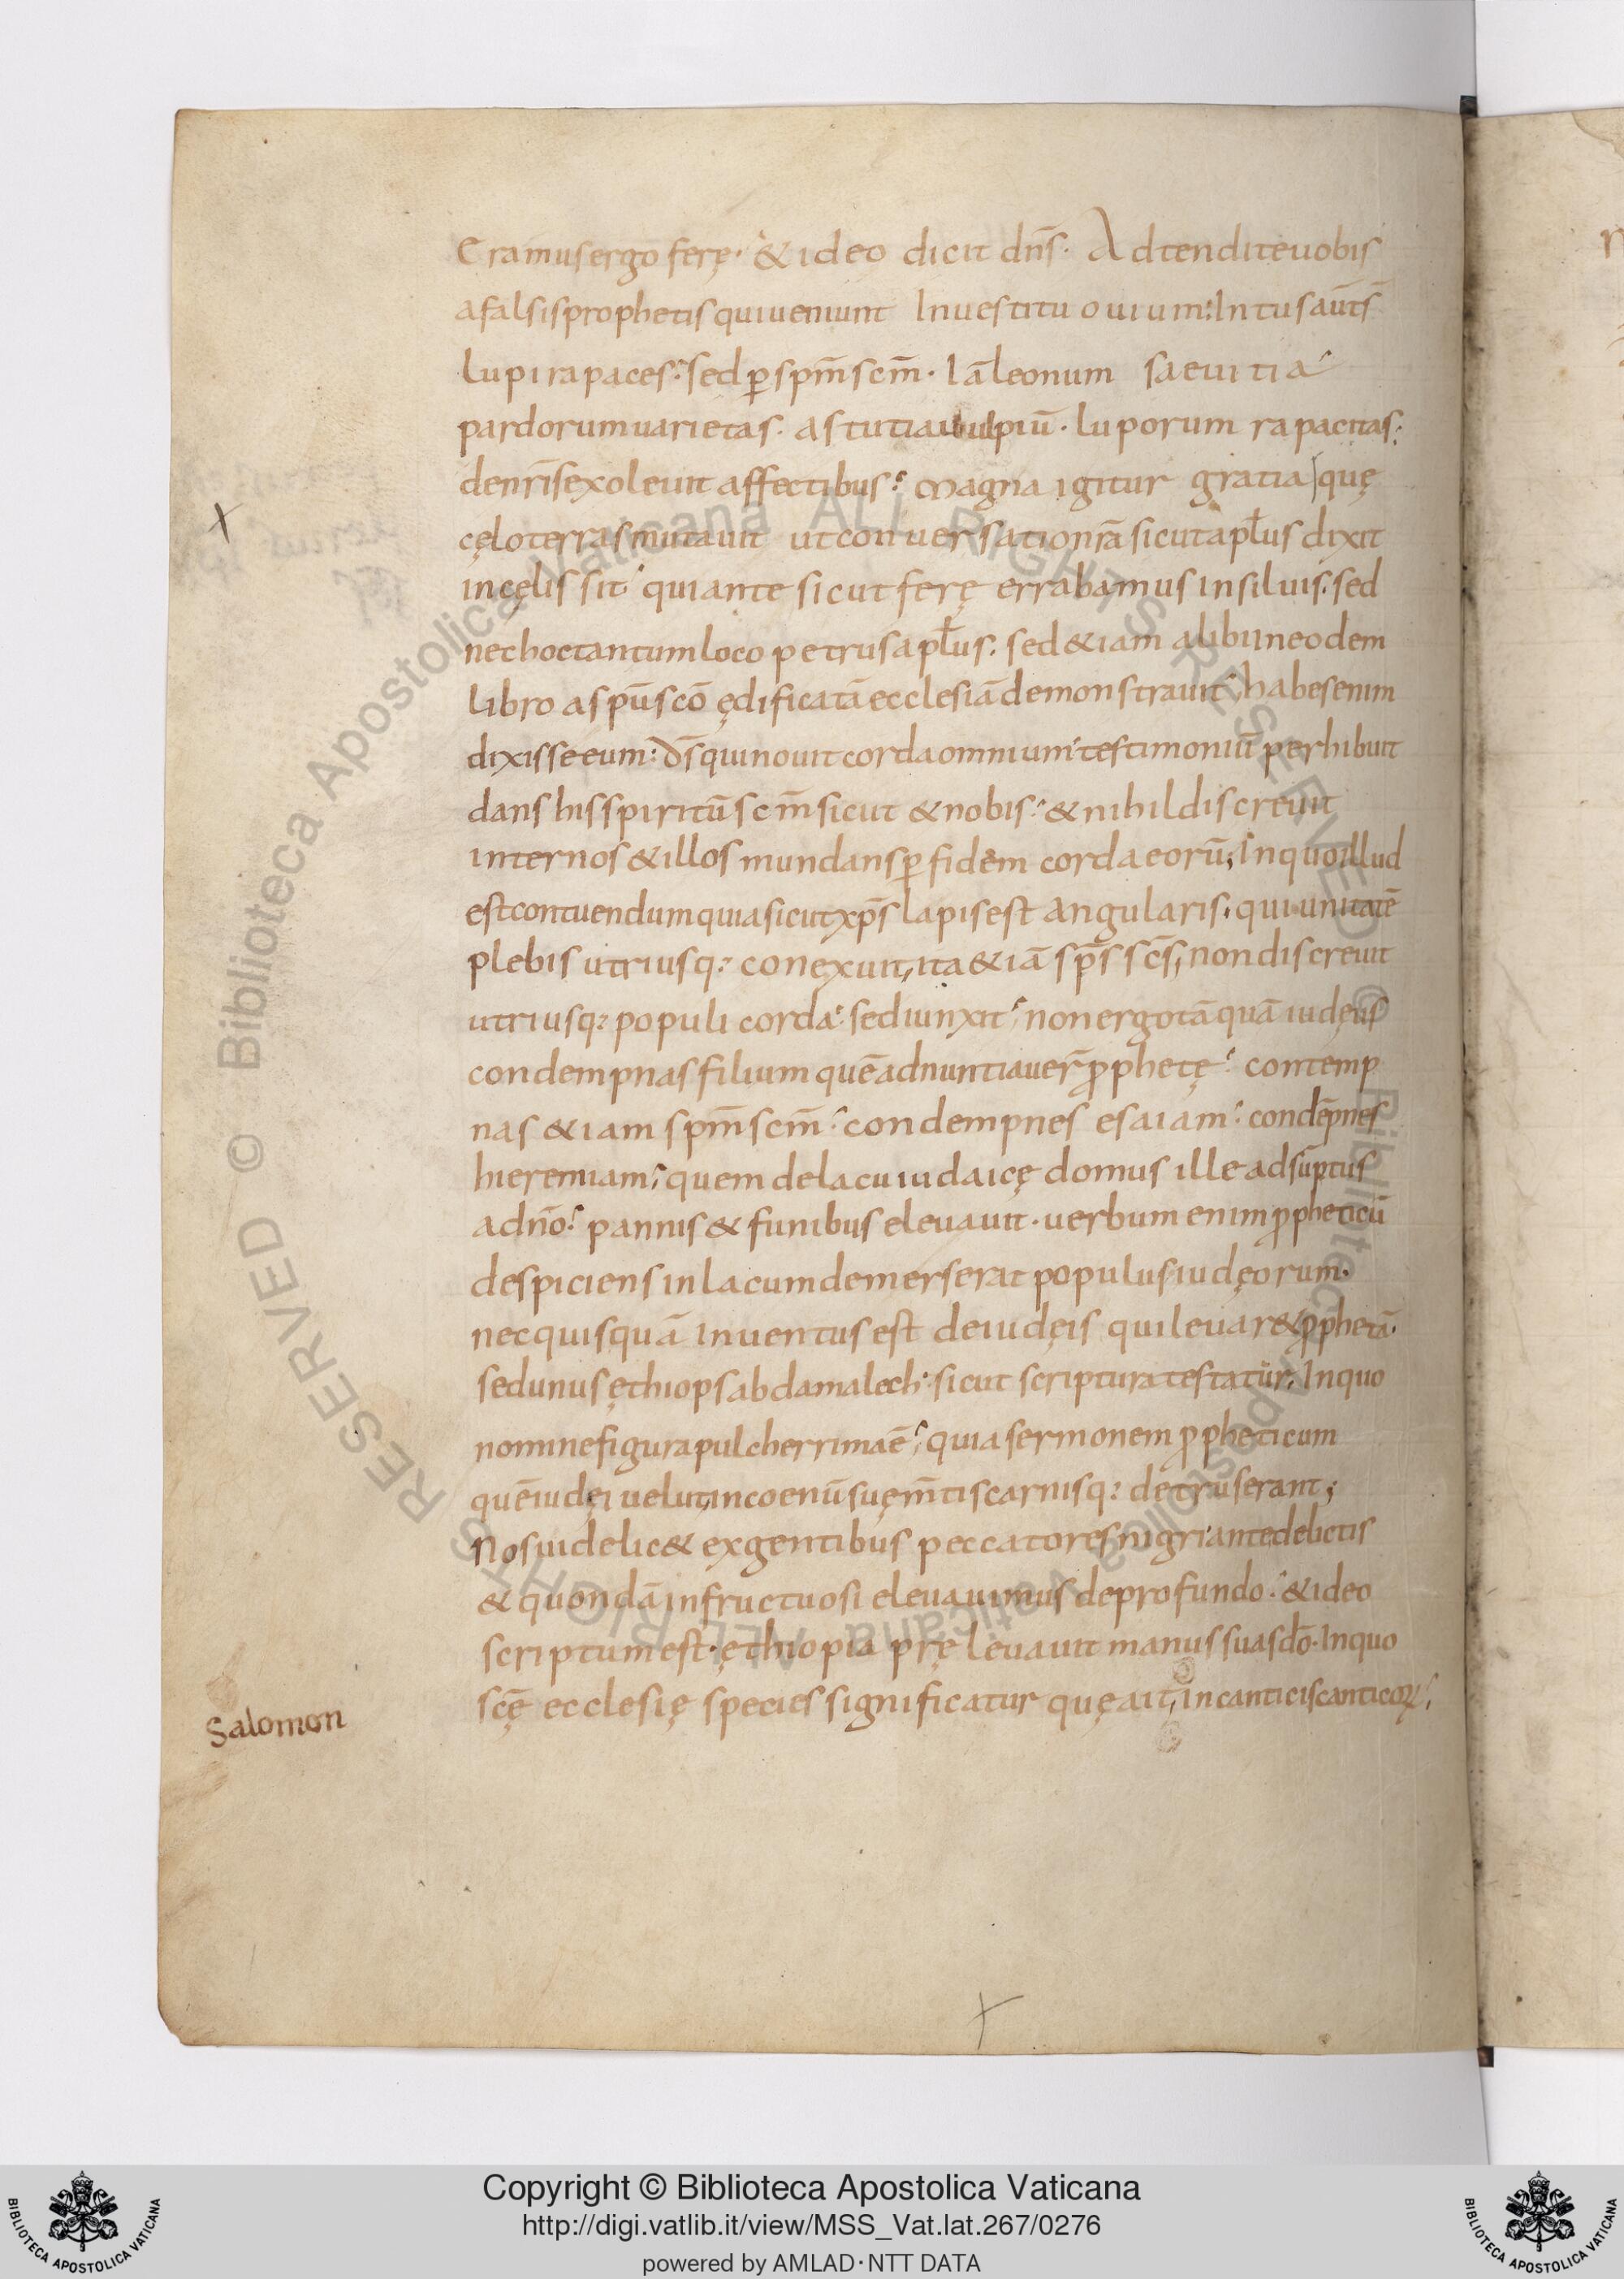 Eramus ergo ferę. & ideo dicit dn̄s. Adtendite uobis
a falsis prophetis qui ueniunt In uestitu ouium: Intus aut̄ s̄
lupi rapaces. sed p̱ sp̄m sc̄m. Iā leonum saeuitia
pardorum uarietas. astutia uulpiū. luporum rapacitas.
de nr̄is exoleuit affectibus. Magna igitur gratia quę
cęlo terras mutauit ut conuersatio nr̄a sicut apl̄us dixit
in cęlis sit qui ante sicut ferę errabamus in siluis. sed
nec hoc tantum loco petrus apl̄us. sed &iam alibi in eodem
libro a sp̄u sc̄o ędificatā ecclesiā demonstrauit; habes enim
dixisse eum: Ds̄ qui nouit corda omnium testimoniū perhibuit
dans his spiritū sc̄m sicut & nobis. & nihil discreuit
inter nos & illos mundans p̱ fidem corda eorū; In quo illud
est contuendum quia sicut xp̄s lapis est angularis, qui unitatē
plebis utriusq; conexuit, ita &iā sp̄s sc̄s, non discreuit
utriusq; populi corda. sed iunxit, non ergo tāquā iudęus
condempnas filium quē adnuntiauer̄ ꝓphetę. contemp
nas &iam sp̄m sc̄m. condempnes esaiam. condēpnes
hieremiam, quem de lacu iudaicę domus ille adsūptus
a dn̄o. pannis & funibus eleuauit. uerbum enim ꝓpheticū
despiciens in lacum demerserat populus iudęorum.
nec quisquā Inuentus est de iudęis qui leuar& ꝓphetā.
sed unus ęthiops abdamalech. sicut scriptura testatur, In quo
nomine figura pulcherrima ē, quia sermonem ꝓpheticum
quē iudęi uelut, in coenū suę m̄tis carnisq; detruserant;
Nos uidelic& ex gentibus peccatores nigri ante delictis
& quondā infructuosi eleuauimus de profundo. & ideo
scriptum est. ęthiopia pręleuauit manus suas dō. In quo
sc̄ę ecclesię species significatur quę ait, in canticis canticoꝝ;
Salomon
Copyright © Biblioteca Apostolica Vaticana
http://digi.vatlib.it/view/MSS_Vat.lat.267/0276
powered by AMLAD·NTT DATA
BIBLIOTECA APOSTOLICA VATICANA
BIBLIOTECA APOSTOLICA VATICANA